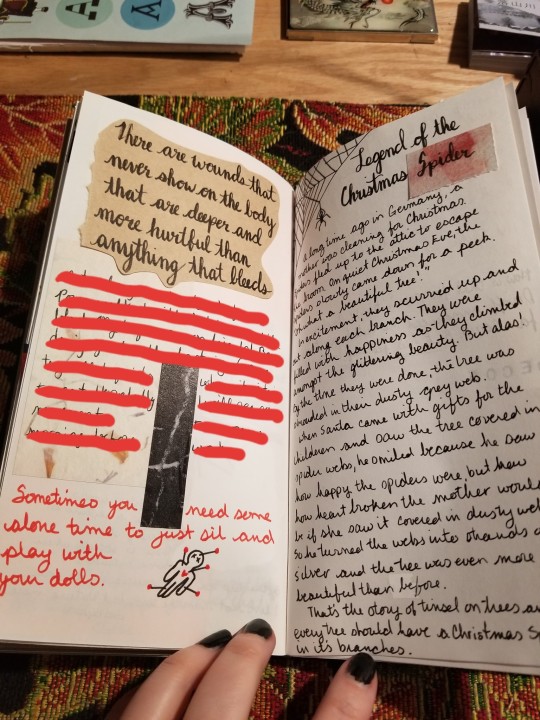 A A
There are wounds that
never show on the body
that are deeper and
more hurtful than
anything that bleeds
Sometimes you need some
alone time to just sit and
play with
your dolls.
Legend of the
Christmas Spider
A long time ago in Germany, a
mother was cleaning for Christmas.
fled up to the attic to escape
broom. On quiet Christmas Eve, the
slowly came down for a peek.
what a beautiful tree!"
excitement, they scurried up and
out along each branch. They were
filled with happiness as they climbed
amongst the glittering beauty. But alas!
by the time they were done, the tree was
shrouded in their dusty grey web.
When Santa came with gifts for the
children and saw the tree covered in
spider webs, he smiled because he saw
how happy the spiders were, but knew
how heart broken the mother would
be if she saw it covered in dusty
So he turned the webs into strands
silver and the tree was even more
beautiful than before.
That's the story of tinsel on trees
every tree should have a Christmas
in its branches.